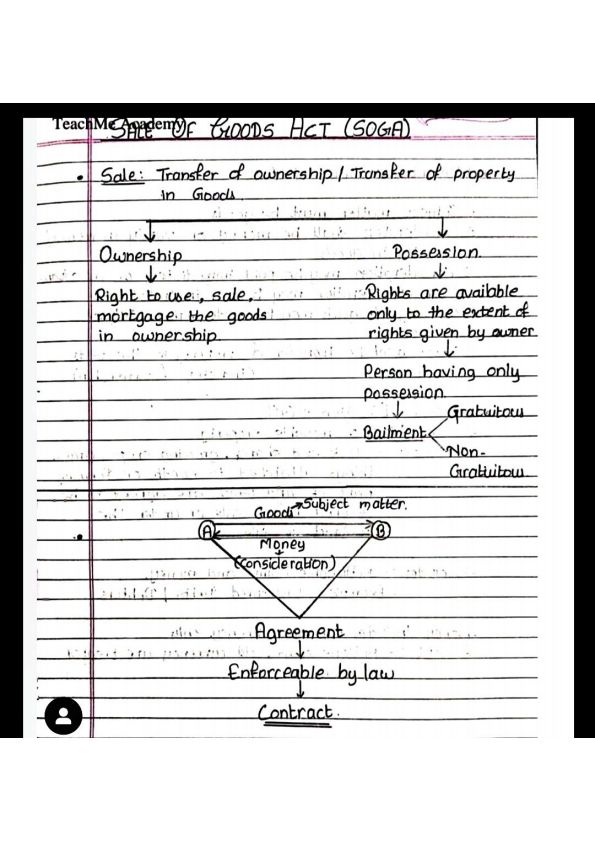 TeachMe Academy
SALE OF GOODS ACT (SOGA)
• Sale: Transfer of ownership / Transfer of property
in Goods.
Ownership
Possession.
Right to use, sale,
mortgage the goods
in ownership.
Rights are available
only to the extent of
rights given by owner
Person having only
possession.
Bailment
Gratuitous
Non-
Gratuitous
Goods → Subject matter.
A
B
Money
(Consideration)
Agreement
Enforceable by law
Contract.